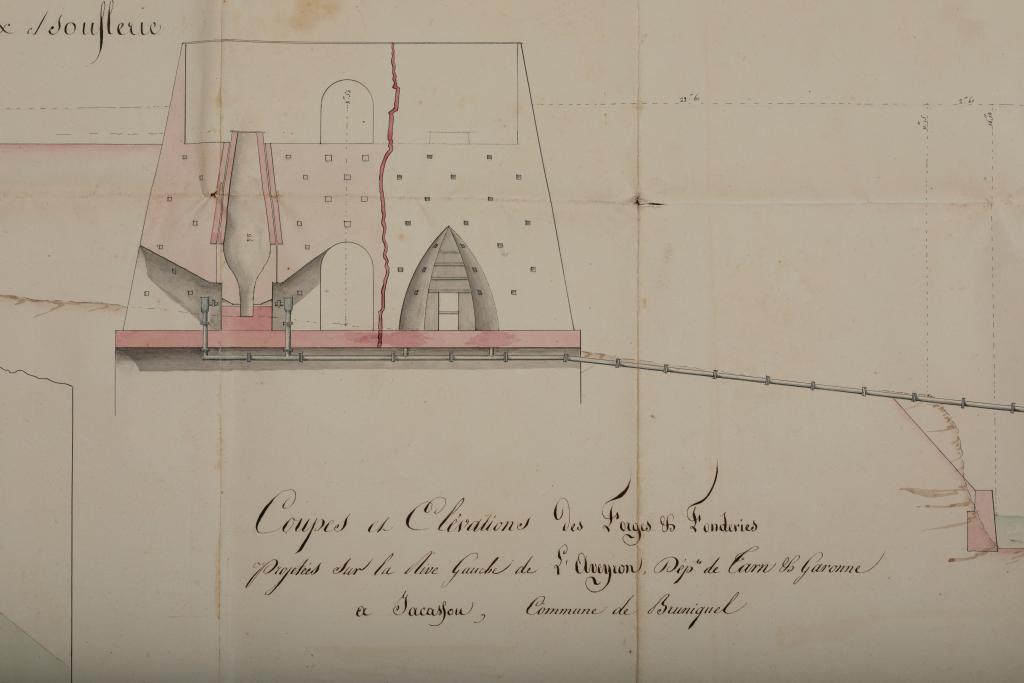 x & Souflerie
Coupes et Elévations des Forges & Fonderies
Projetées sur la Rive Gauche de L'Aveyron, Dép.t de Tarn & Garonne
a Jacassou, Commune de Bruniquel